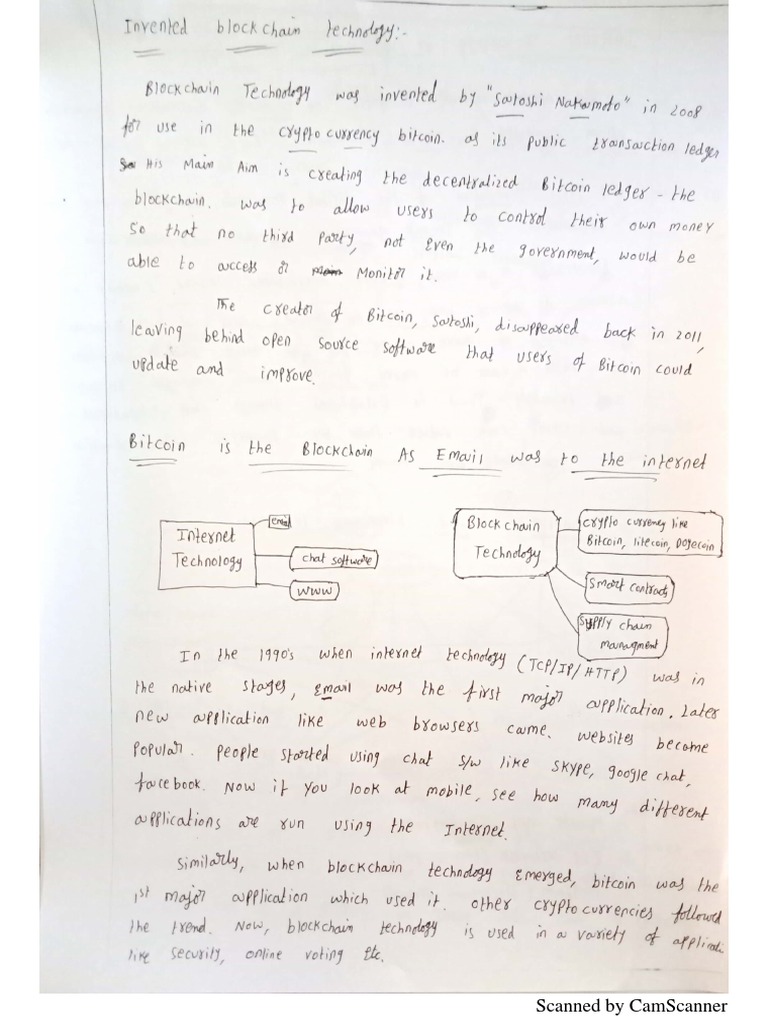 Invented blockchain technology:-
Blockchain Technology was invented by "Satoshi Nakamoto" in 2008
for use in the cryptocurrency bitcoin. as its public transaction ledger
His Main Aim is creating the decentralized Bitcoin ledger - the
blockchain. was to allow users to control their own money
so that no third party, not Even the government, would be
able to access or Monitor it.
The creator of Bitcoin, Satoshi, disappeared back in 2011,
leaving behind open source software that users of Bitcoin could
update and improve.
Bitcoin is the Blockchain As Email was to the internet
Internet
Technology
email
chat software
WWW
Block chain
Technology
crypto currency like
Bitcoin, litecoin, Dogecoin
Smart contracts
Supply chain
managment
In the 1990's when internet technology (TCP/IP/HTTP) was in
the native stages, Email was the first major application. Later
new application like web browsers came. websites become
popular. people started using chat s/w like skype, google chat,
facebook. Now if you look at mobile, see how many different
applications are run using the Internet.
Similarly, when blockchain technology Emerged, bitcoin was the
1st major application which used it. other cryptocurrencies followed
the trend. Now, blockchain technology is used in a variety of applicati
like security, online voting Etc.
Scanned by CamScanner